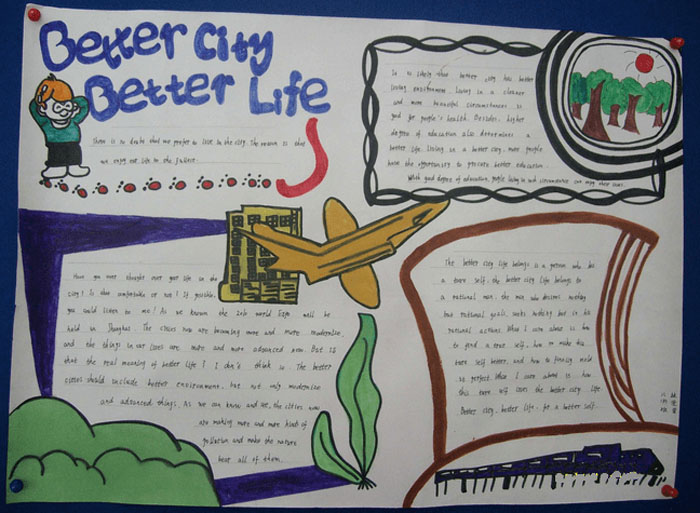 Better City
Better Life
There is no doubt that we prefer to live in the city. The reason is that
we enjoy our life to the fullest.
It is likely that better city has better
living environment. Living in a cleaner
and more beautiful circumstances is
good for people's health. Besides, higher
degree of education also determines a
better life. Living in a better city, more people
have the opportunity to procure better education.
With good degree of education, people living in such circumstance can enjoy their lives.
Have you ever thought over your life in the
city? Is that comfortable or not? If possible,
you could listen to me! As we known the 2010 world Expo will be
held in Shanghai. The cities now are becoming more and more modernize
and the things in our lives are more and more advanced now. But is
that the real meaning of better life? I don't think so. The better
cities should include better environment, but not only modernize
and advanced things. As we can know and see, the cities now
are making more and more kinds of
pollution and make the nature
bear all of them.
The better city life belongs is a person who has
a turn self. the better city life belongs to
a rational man. the man who desires nothing
but rational goals, seeks nothing but
rational actions. What I care about is how
to find a true self, how to make this
turn self better, and how to
perfect. What I care about is how
this turn self
the better city life
Better city, better life. for a better self.